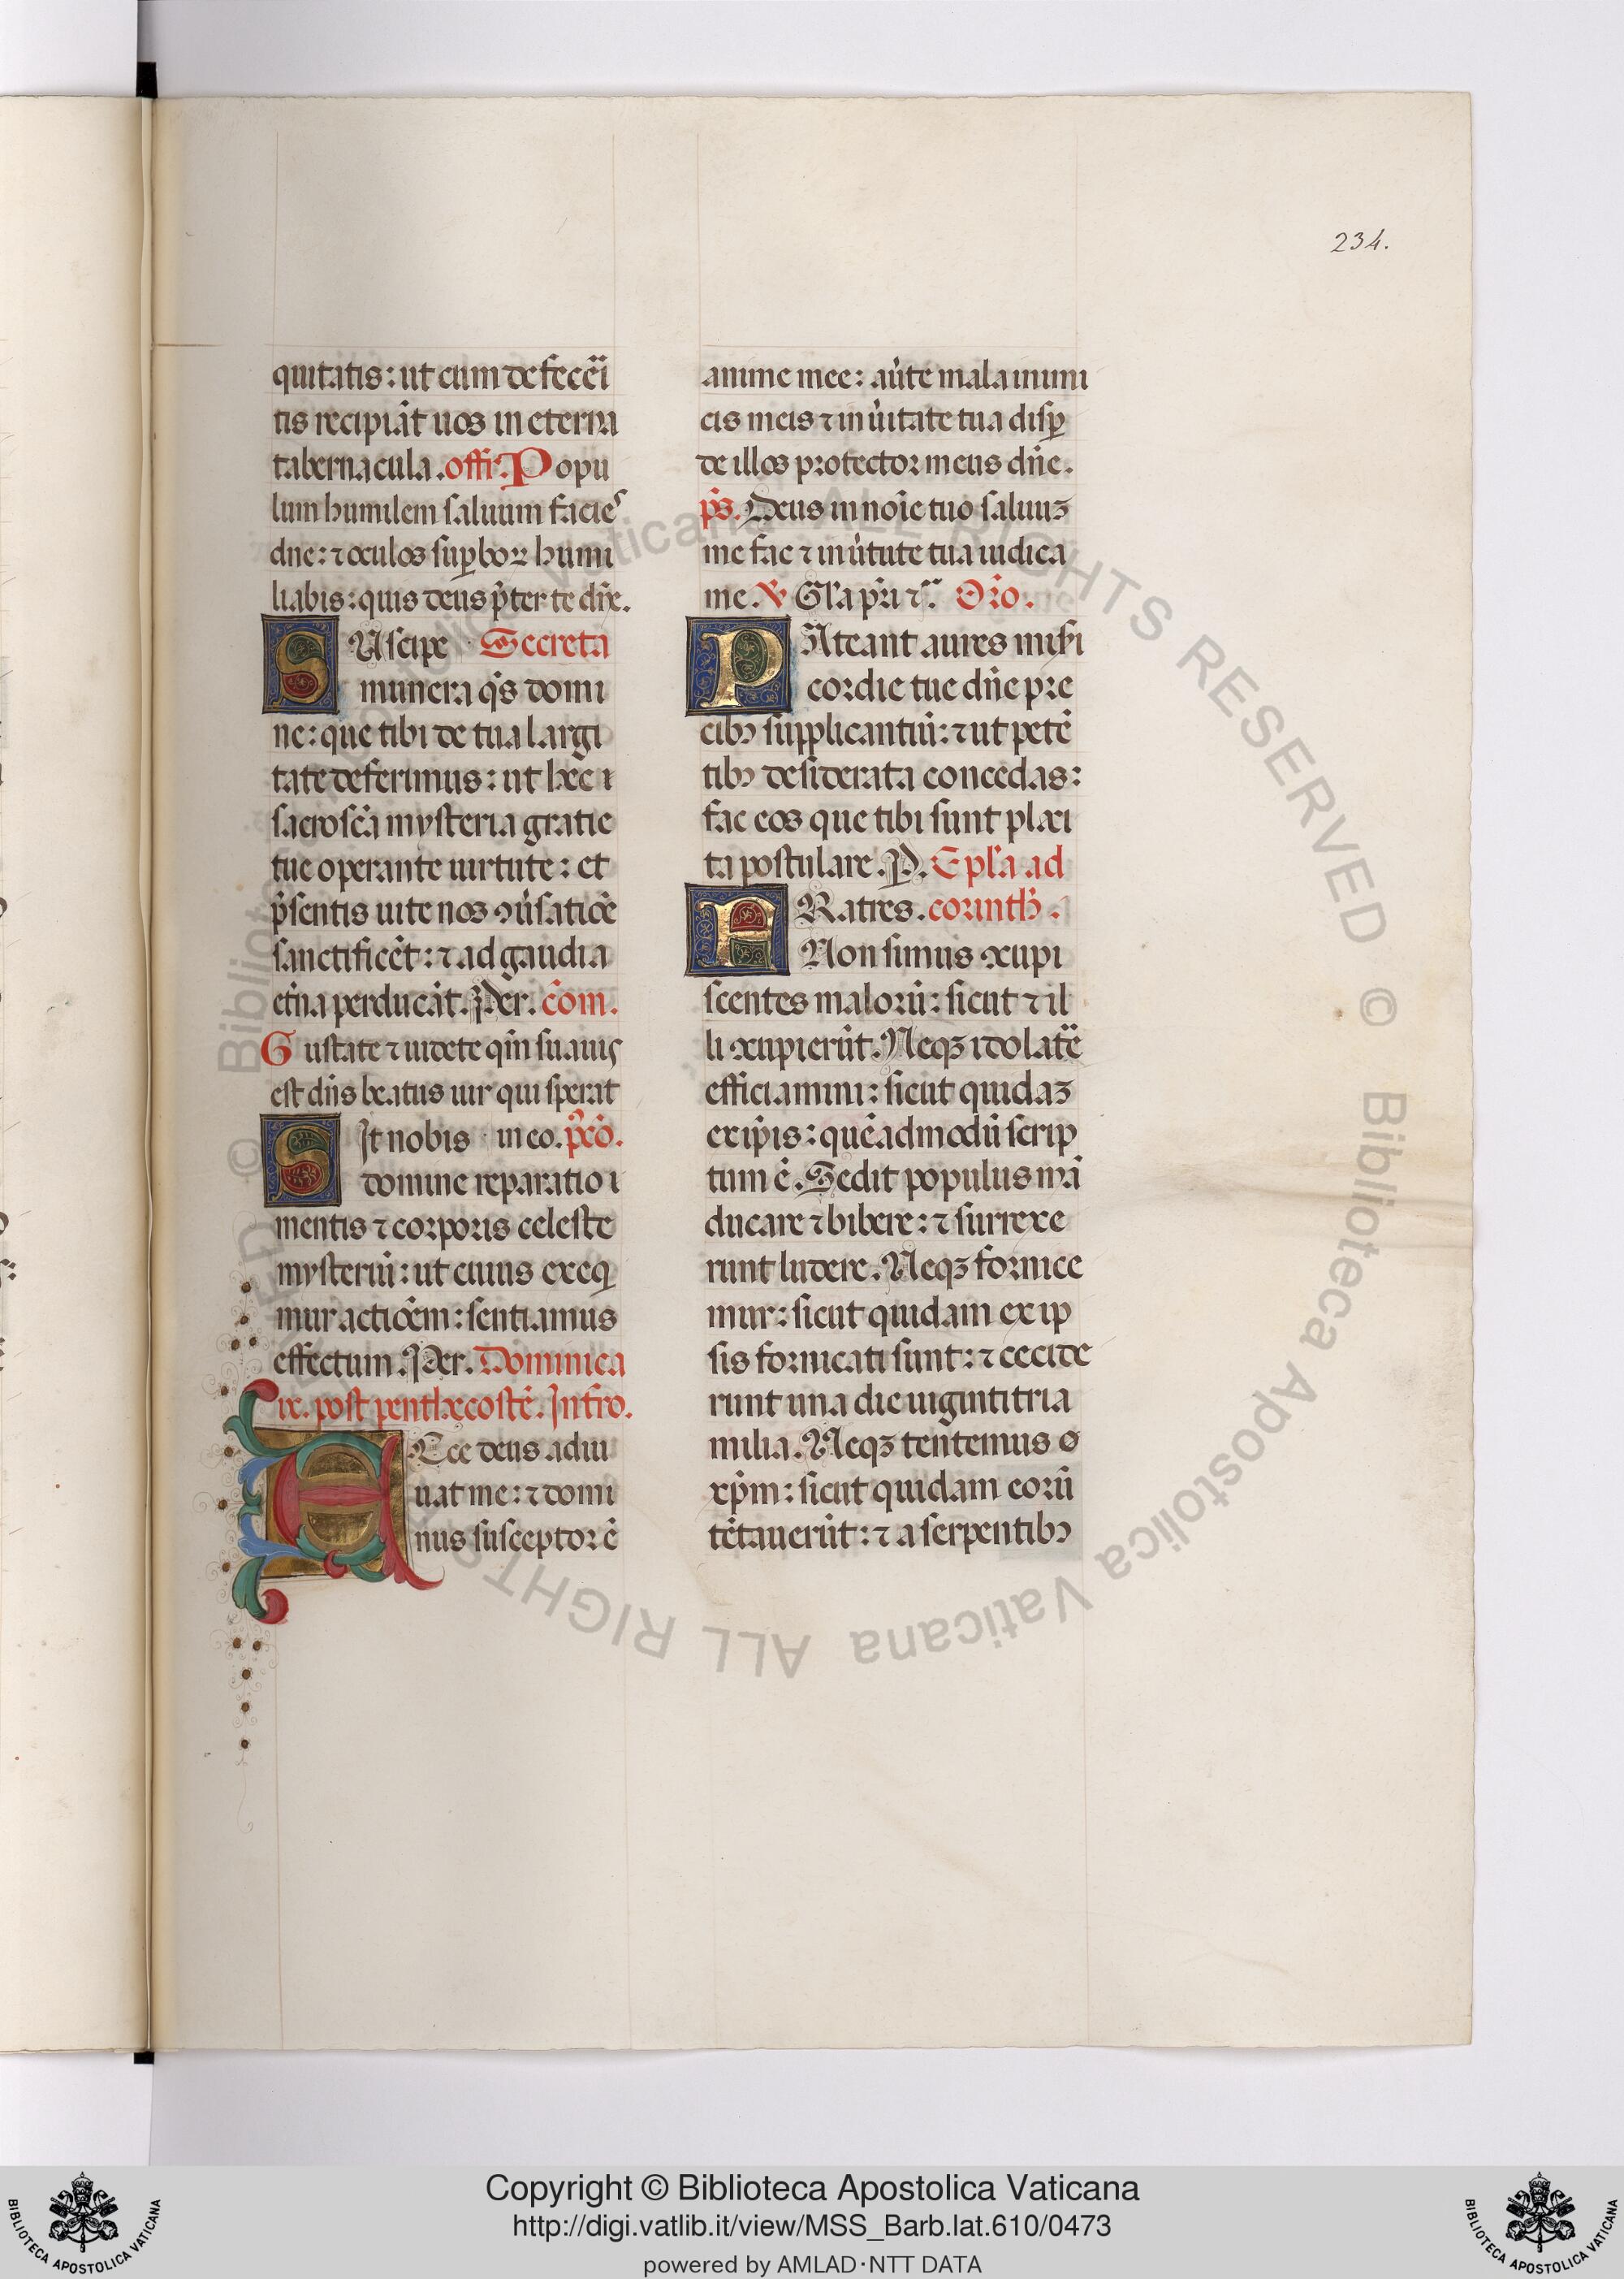 234.
quitatis: ut cum defeceri
tis recipiāt uos in eterna
tabernacula. offr̄. Popu
lum humilem saluum facies
dn̄e: ⁊ oculos suꝑboꝝ humi
liabis: quis deus p̄ter te dn̄e.
SUscipe Secreta
munera q̄s domi
ne: que tibi de tua largi
tate deferimus: ut hec ī
sacrosc̄a mysteria gratie
tue operante uirtute: et
p̄sentis uite nos ꝯūsatiōe
sanctificēt: ⁊ ad gaudia
et̄na perducāt. Per. cōm.
Gustate ⁊ uidete qm̄ suauis
est dn̄s beatus uir qui sperat
SIt nobis in eo. p̄cō.
domine reparatio ī
mentis ⁊ corporis celeste
mysteriū: ut cuius exeq̄
mur actiōem: sentiamus
effectum. Per. Dominica
ix. post penthecostē. Intro.
ECce deus adiu
uat me: ⁊ domi
nus susceptor ē
anime mee: aūte mala inimi
cis meis ⁊ in ūitate tua disꝑ
de illos protector meus dn̄e.
p̄s. Deus in noīe tuo saluuꝫ
me fac ⁊ in ūtute tua iudica
me. ℣ Gl̄a pr̄i ⁊c̄. Or̄o.
PAteant aures mis̄i
cordie tue dn̄e pre
cibꝰ supplicantiū: ⁊ ut petē
tibꝰ desiderata concedas:
fac eos que tibi sunt placi
ta postulare. P. Epl̄a ad
FRatres. corinth̄.
Non simus ꝯcupi
scentes malorū: sicut ⁊ il
li ꝯcupierūt. Neqꝫ idolatr̄e
efficiamini: sicut quidaꝫ
ex ip̄is: quēadmodū scrip
tum ē. Sedit populus mā
ducare ⁊ bibere: ⁊ surrexe
runt ludere. Neqꝫ fornice
mur: sicut quidam ex ip
sis fornicati sunt: ⁊ cecide
runt una die uigintitria
milia. Neqꝫ tentemus
xp̄m: sicut quidam eorū
tētauerūt: ⁊ a serpentibꝰ
© Biblioteca Apostolica Vaticana ALL RIGHTS RESERVED © Biblioteca Apostolica Vaticana ALL RIGHTS RESERVED
Copyright © Biblioteca Apostolica Vaticana
http://digi.vatlib.it/view/MSS_Barb.lat.610/0473
powered by AMLAD·NTT DATA
BIBLIOTECA APOSTOLICA VATICANA
BIBLIOTECA APOSTOLICA VATICANA